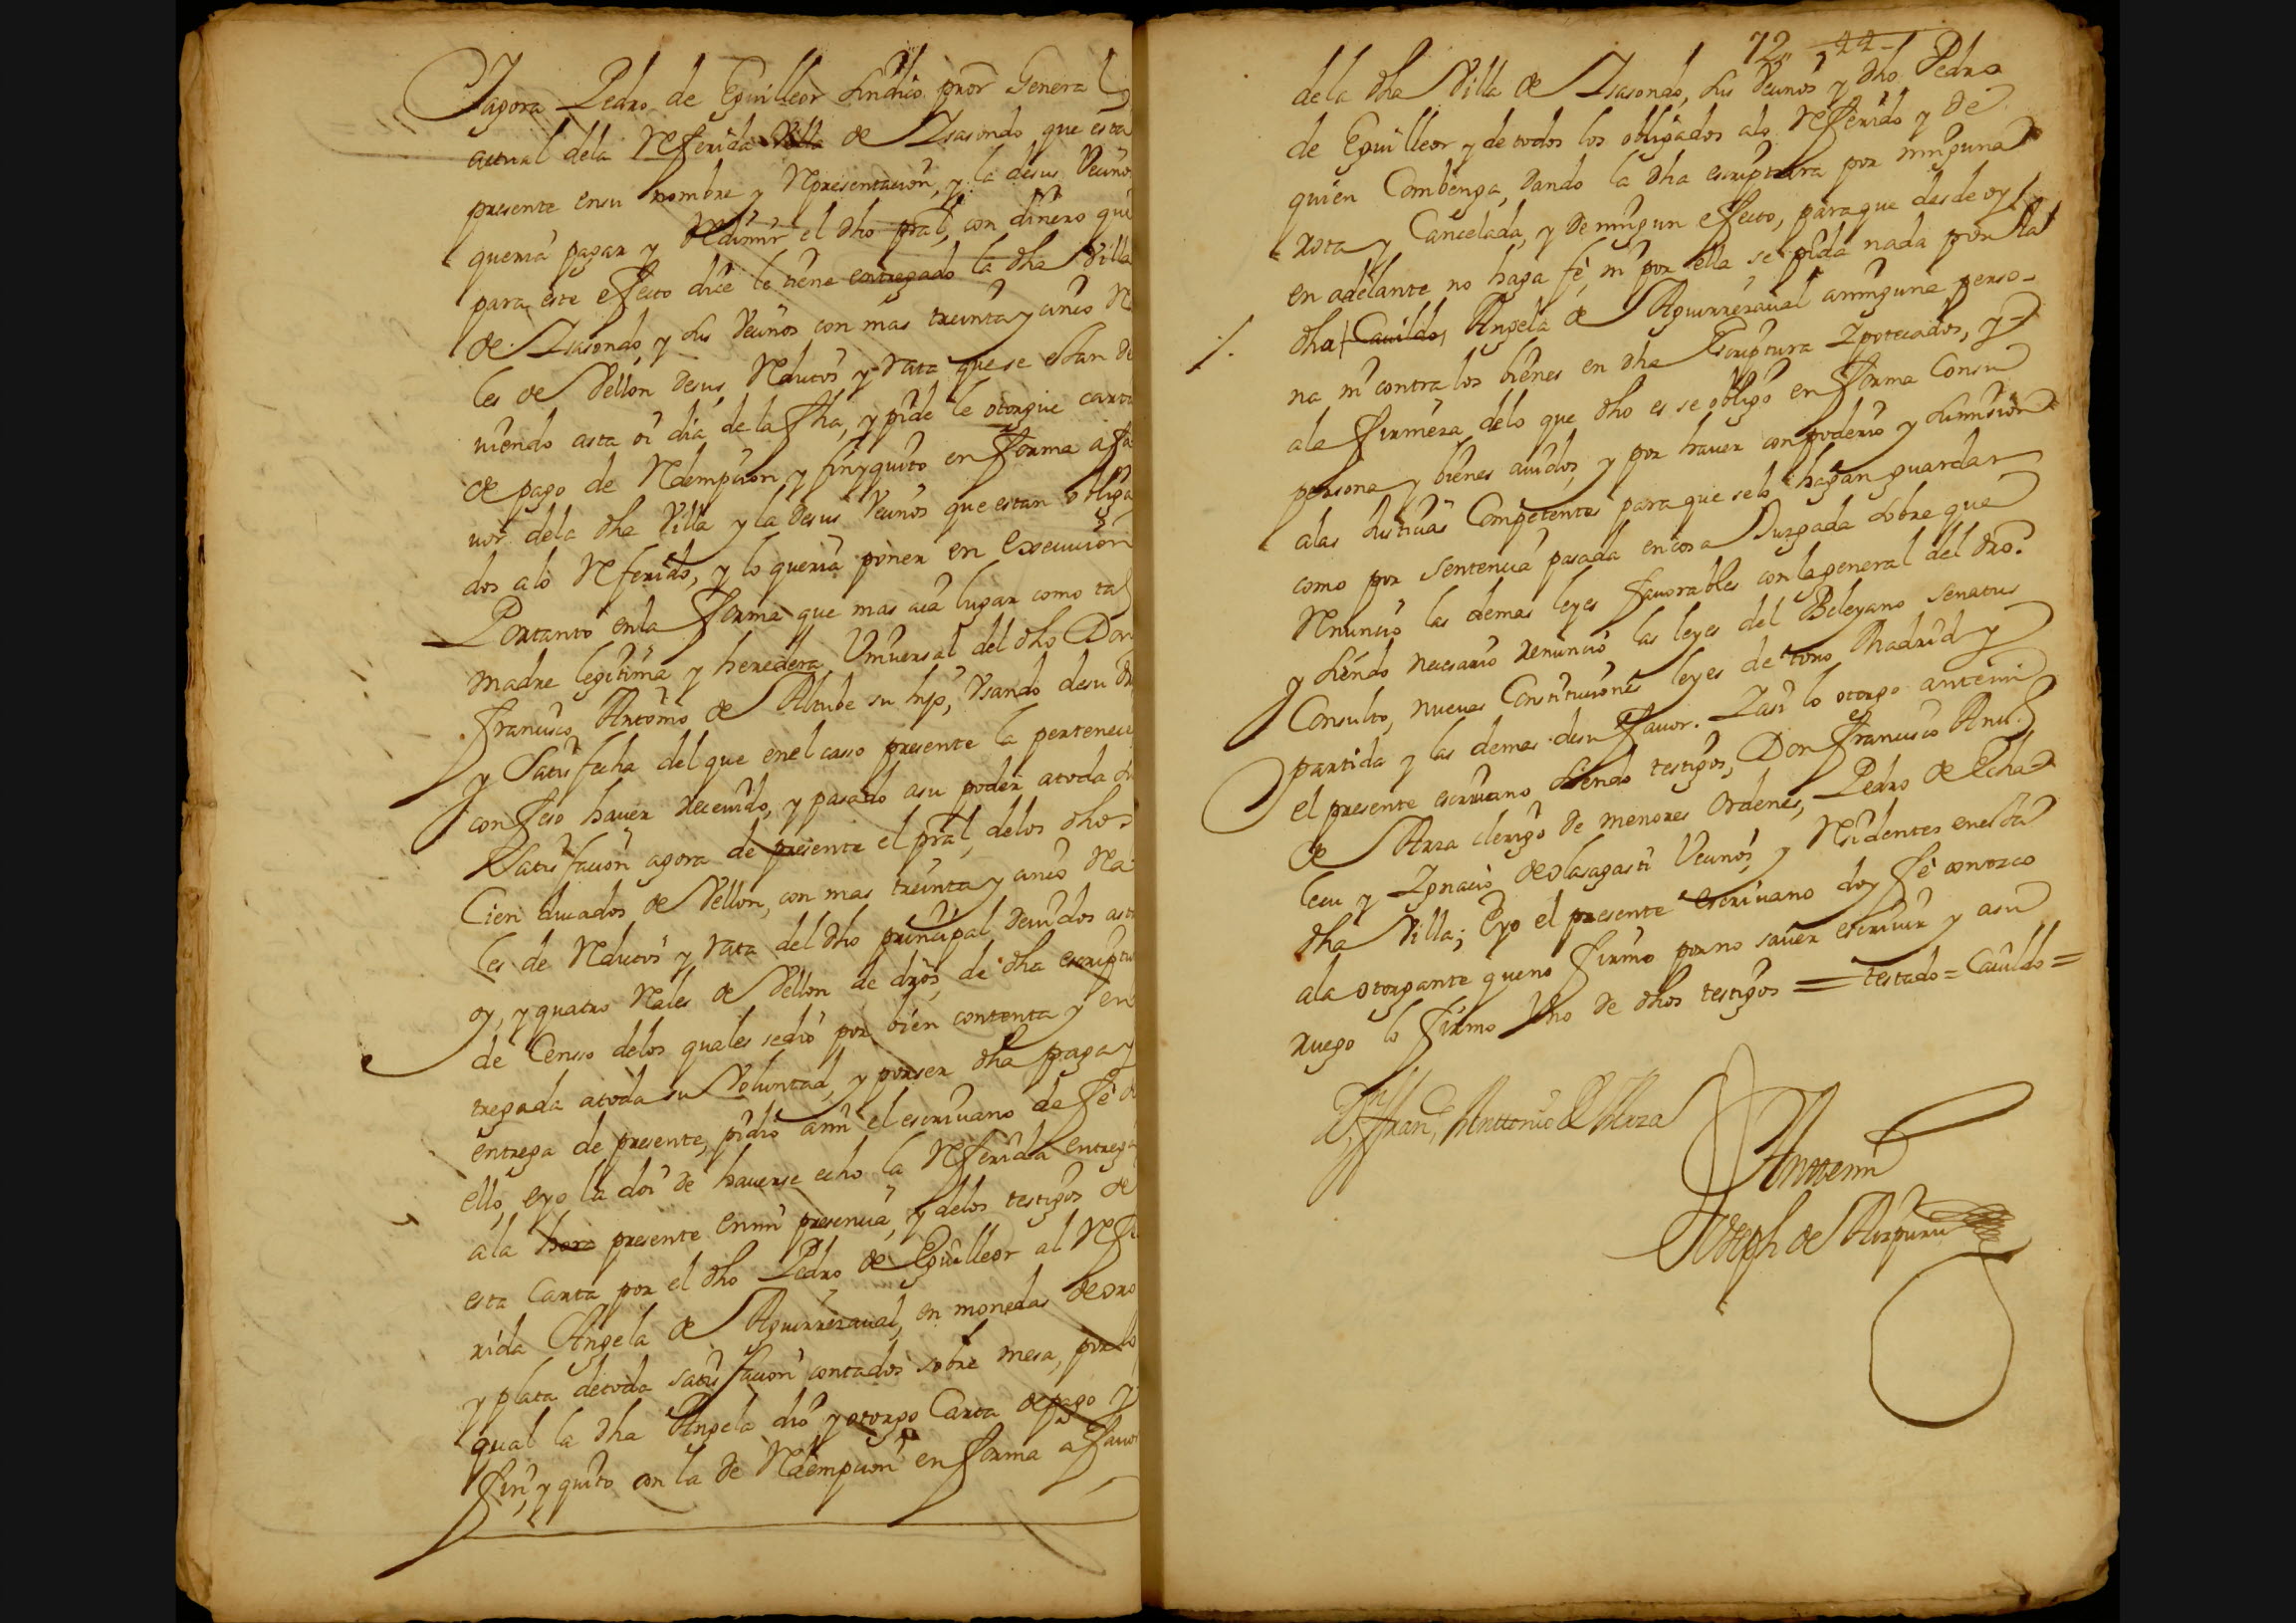 Yagora Pedro de Eguilleor sindico pror General
actual dela Referida Villa de Isasondo que esta
presente ensu nombre y Representacion, y la desus Vecinos
queria pagar y Redimir el dho pral, con dinero que
para este effecto dice le tiene entregado la dha Villa
de Isasondo, y sus Vecinos con mas treinta y cinco Rea
les de Vellon desus Reditos y rata que se estan de
uiendo asta oi dia de la fha, y pide le otorgue carta
de pago de Redempcion y finyquito en forma a fa
uor dela dha Villa y la desus Vecinos que estan obliga
dos alo Referido, y lo queria poner en Execucion
Portanto enla forma que mas aia lugar como tal
madre legitima y heredera Vniuersal del dho Don
Francisco Antonio de Altube su hijo, Vsando desu dro
y Satisfecha del que enel casso presente la pertenece
confeso hauer receuido, y pasado asu poder atoda su
Satisfacion agora de presente el pral, delos dhos
Cien ducados de Vellon, con mas treinta y cinco Rea
les de Reditos y rata del dho principal deuidos asta
oy, y quatro Reales de Vellon de dros, de dha escriptura
de Censso delos quales sedio por bien contenta y en
tregada atoda su Voluntad, y porser dha paga y
entrega de presente, pidio ami el escriuano de fé de
ello, eyo la doi de hauerse echo la Referida entrega
ala hora presente enmi presencia, y delos testigos de
esta Carta por el dho Pedro de Eguilleor al Refe
rida Angela de Aguirrezaual, en monedas de oro
y plata detoda satisfacion contados sobre mesa, por lo
qual la dha Angela dio y otorgo Carta depago y
fin, y quito con la de Redempcion en forma a fauor
72,, 44
dela dha Villa de Isasondo, sus Vecinos y dho Pedro
de Eguilleor y de todos los obligados alo Referido y de
quien Combenga, dando la dha escriptura por ninguna
rota y Cancelada, y de ningun effecto, paraque desde oy
en adelante no haga fé, ni por ella se pida nada por la
dha Cauildo, Angela de Aguirrezaual aninguna perso-
na ni contra los bienes en dha Escriptura Ypotecados, y
ala firmeza delo que dho es se obligo en forma Consu
persona y bienes auidos, y por hauer con poderio y sumision
alas Justicias Competentes para que selo hagan guardar
como por Sentencia pasada encosa Juzgada sobre que
Renuncio las demas leyes fauorables con la general del dro.
y siendo necesario renuncio las leyes del Beleyano Senatus
Consulto, nueuas Constituciones leyes de toro Madrid y
partida y las demas desu fauor. Yasi lo otorgo antemi
el presente escriuano siendo testigos, Don Francisco Antt.
de Arza clerigo de menores Ordenes, Pedro de Echa
cecu y Ygnacio de olasagasti Vecinos, y Residentes enesta
dha Villa; Eyo el presente escriuano doy fé conozco
ala otorgante queno firmo porno sauer escriuir y asu
ruego lo firmo Vno de dhos testigos = testado = Cauildo =
Dn Fran. Anttonio de Arza
Anttemi
Joseph de Aizpuru